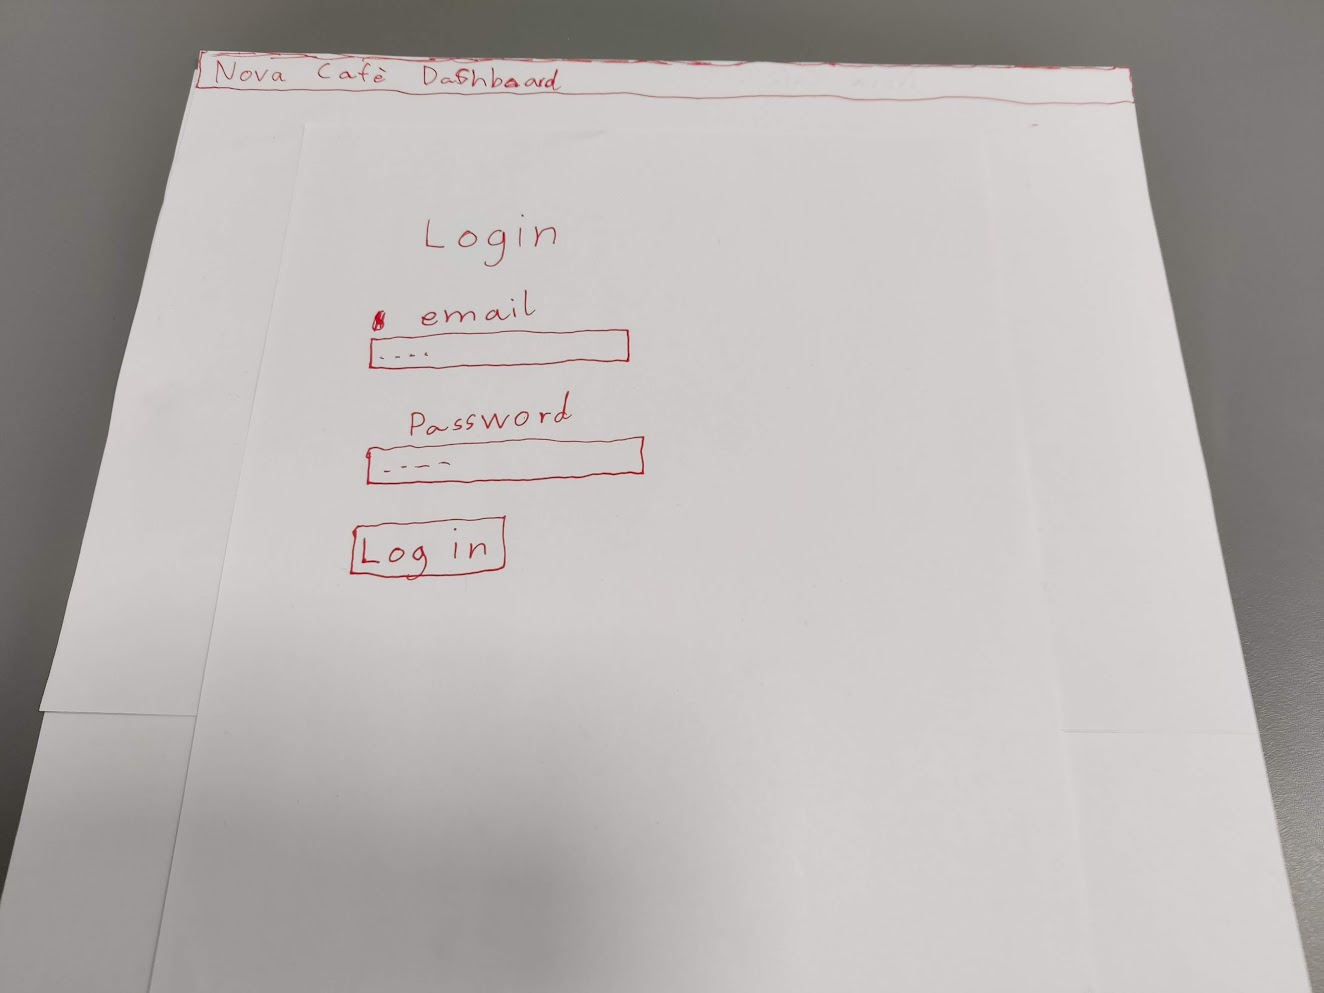 Nova Cafè Dashboard
Login
email
----
Password
----
Log in